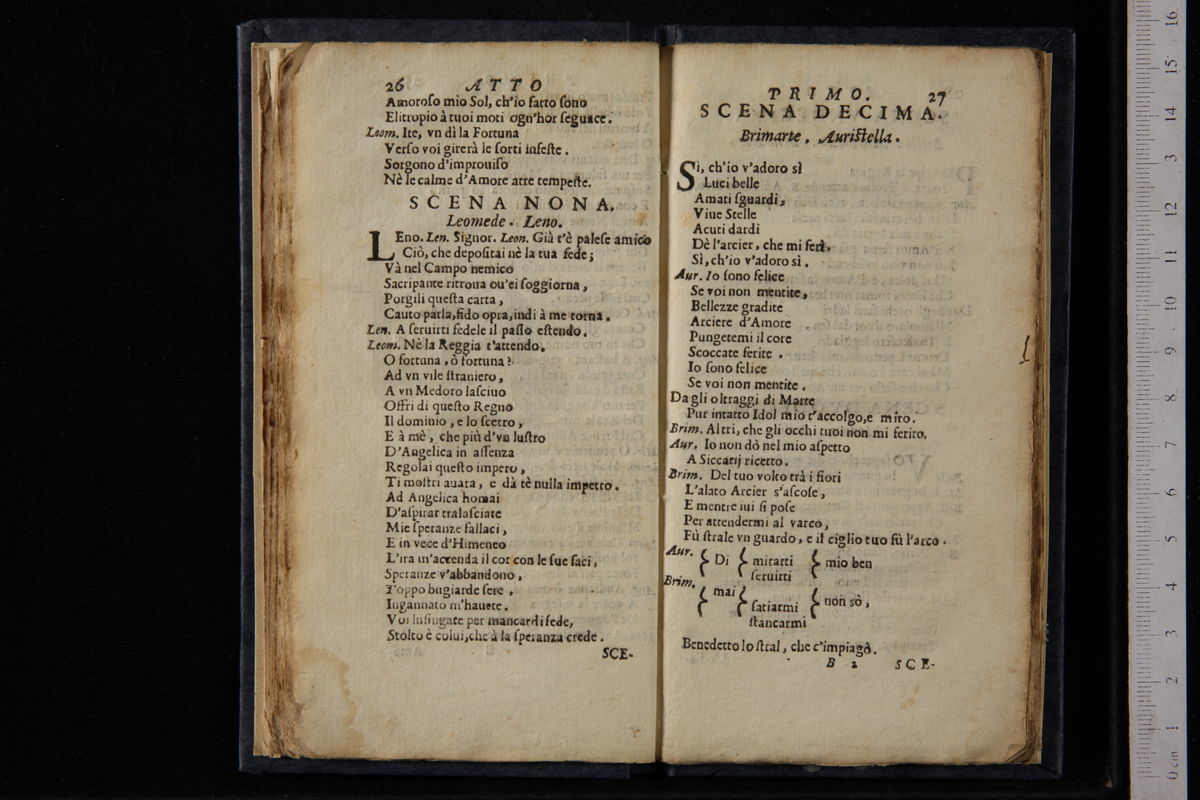 26 ATTO
Amoroſo mio Sol, ch'io fatto ſono
Elitropio à tuoi moti ogn'hor ſeguace.
Leom. Ite, vn dì la Fortuna
Verſo voi girerà le ſorti infeſte.
Sorgono d'improuiſo
Nè le calme d'Amore atre tempeſte.
SCENA NONA.
Leomede. Leno.
LEno. Len. Signor. Leon. Già t'è paleſe amico
Ciò, che depoſitai nè la tua fede;
Và nel Campo nemico
Sacripante ritroua ou'ei ſoggiorna,
Porgili queſta carta,
Cauto parla, fido opra, indi à me torna.
Len. A ſeruirti fedele il paſſo eſtendo.
Leom. Nè la Reggia t'attendo.
O fortuna, ò fortuna?
Ad vn vile ſtraniero,
A vn Medoro laſciuo
Offri di queſto Regno
Il dominio, e lo ſcetro,
E à mè, che più d'vn luſtro
D'Angelica in aſſenza
Regolai queſto impero,
Ti moſtri auara, e dà tè nulla impetro.
Ad Angelica homai
D'aſpirar tralaſciate
Mie ſperanze fallaci,
E in vece d'Himeneo
L'ira m'accenda il cor con le ſue faci,
Speranze v'abbandono,
Troppo bugiarde ſere,
Ingannato m'hauete.
Voi luſingate per mancar di fede,
Stolto è colui, che à la ſperanza crede.
SCE-
PRIMO. 27
SCENA DECIMA.
Brimarte. Auriſtella.
SI, ch'io v'adoro sì
Luci belle
Amati ſguardi,
Viue Stelle
Acuti dardi
Dè l'arcier, che mi ferì,
Sì, ch'io v'adoro sì.
Aur. Io ſono felice
Se voi non mentite,
Bellezze gradite
Arciere d'Amore
Pungetemi il core
Scoccate ferite.
Io ſono felice
Se voi non mentite.
Da gli oltraggi di Marte
Pur intatto Idol mio t'accolgo, e miro.
Brim. Altri, che gli occhi tuoi non mi feriro,
Aur. Io non dò nel mio aſpetto
A Siccarij ricetto.
Brim. Del tuo volto trà i fiori
L'alato Arcier s'aſcoſe,
E mentre iui ſi poſe
Per attendermi al varco,
Fù ſtrale vn guardo, e il ciglio tuo fù l'arco.
Aur. { Di { mirarti { mio ben
ſeruirti
Brim. { mai { ſatiarmi { non sò,
ſtancarmi
Benedetto lo ſtral, che c'impiagò.
B 2 SCE-
0 cm 1 2 3 4 5 6 7 8 9 10 11 12 13 14 15 16